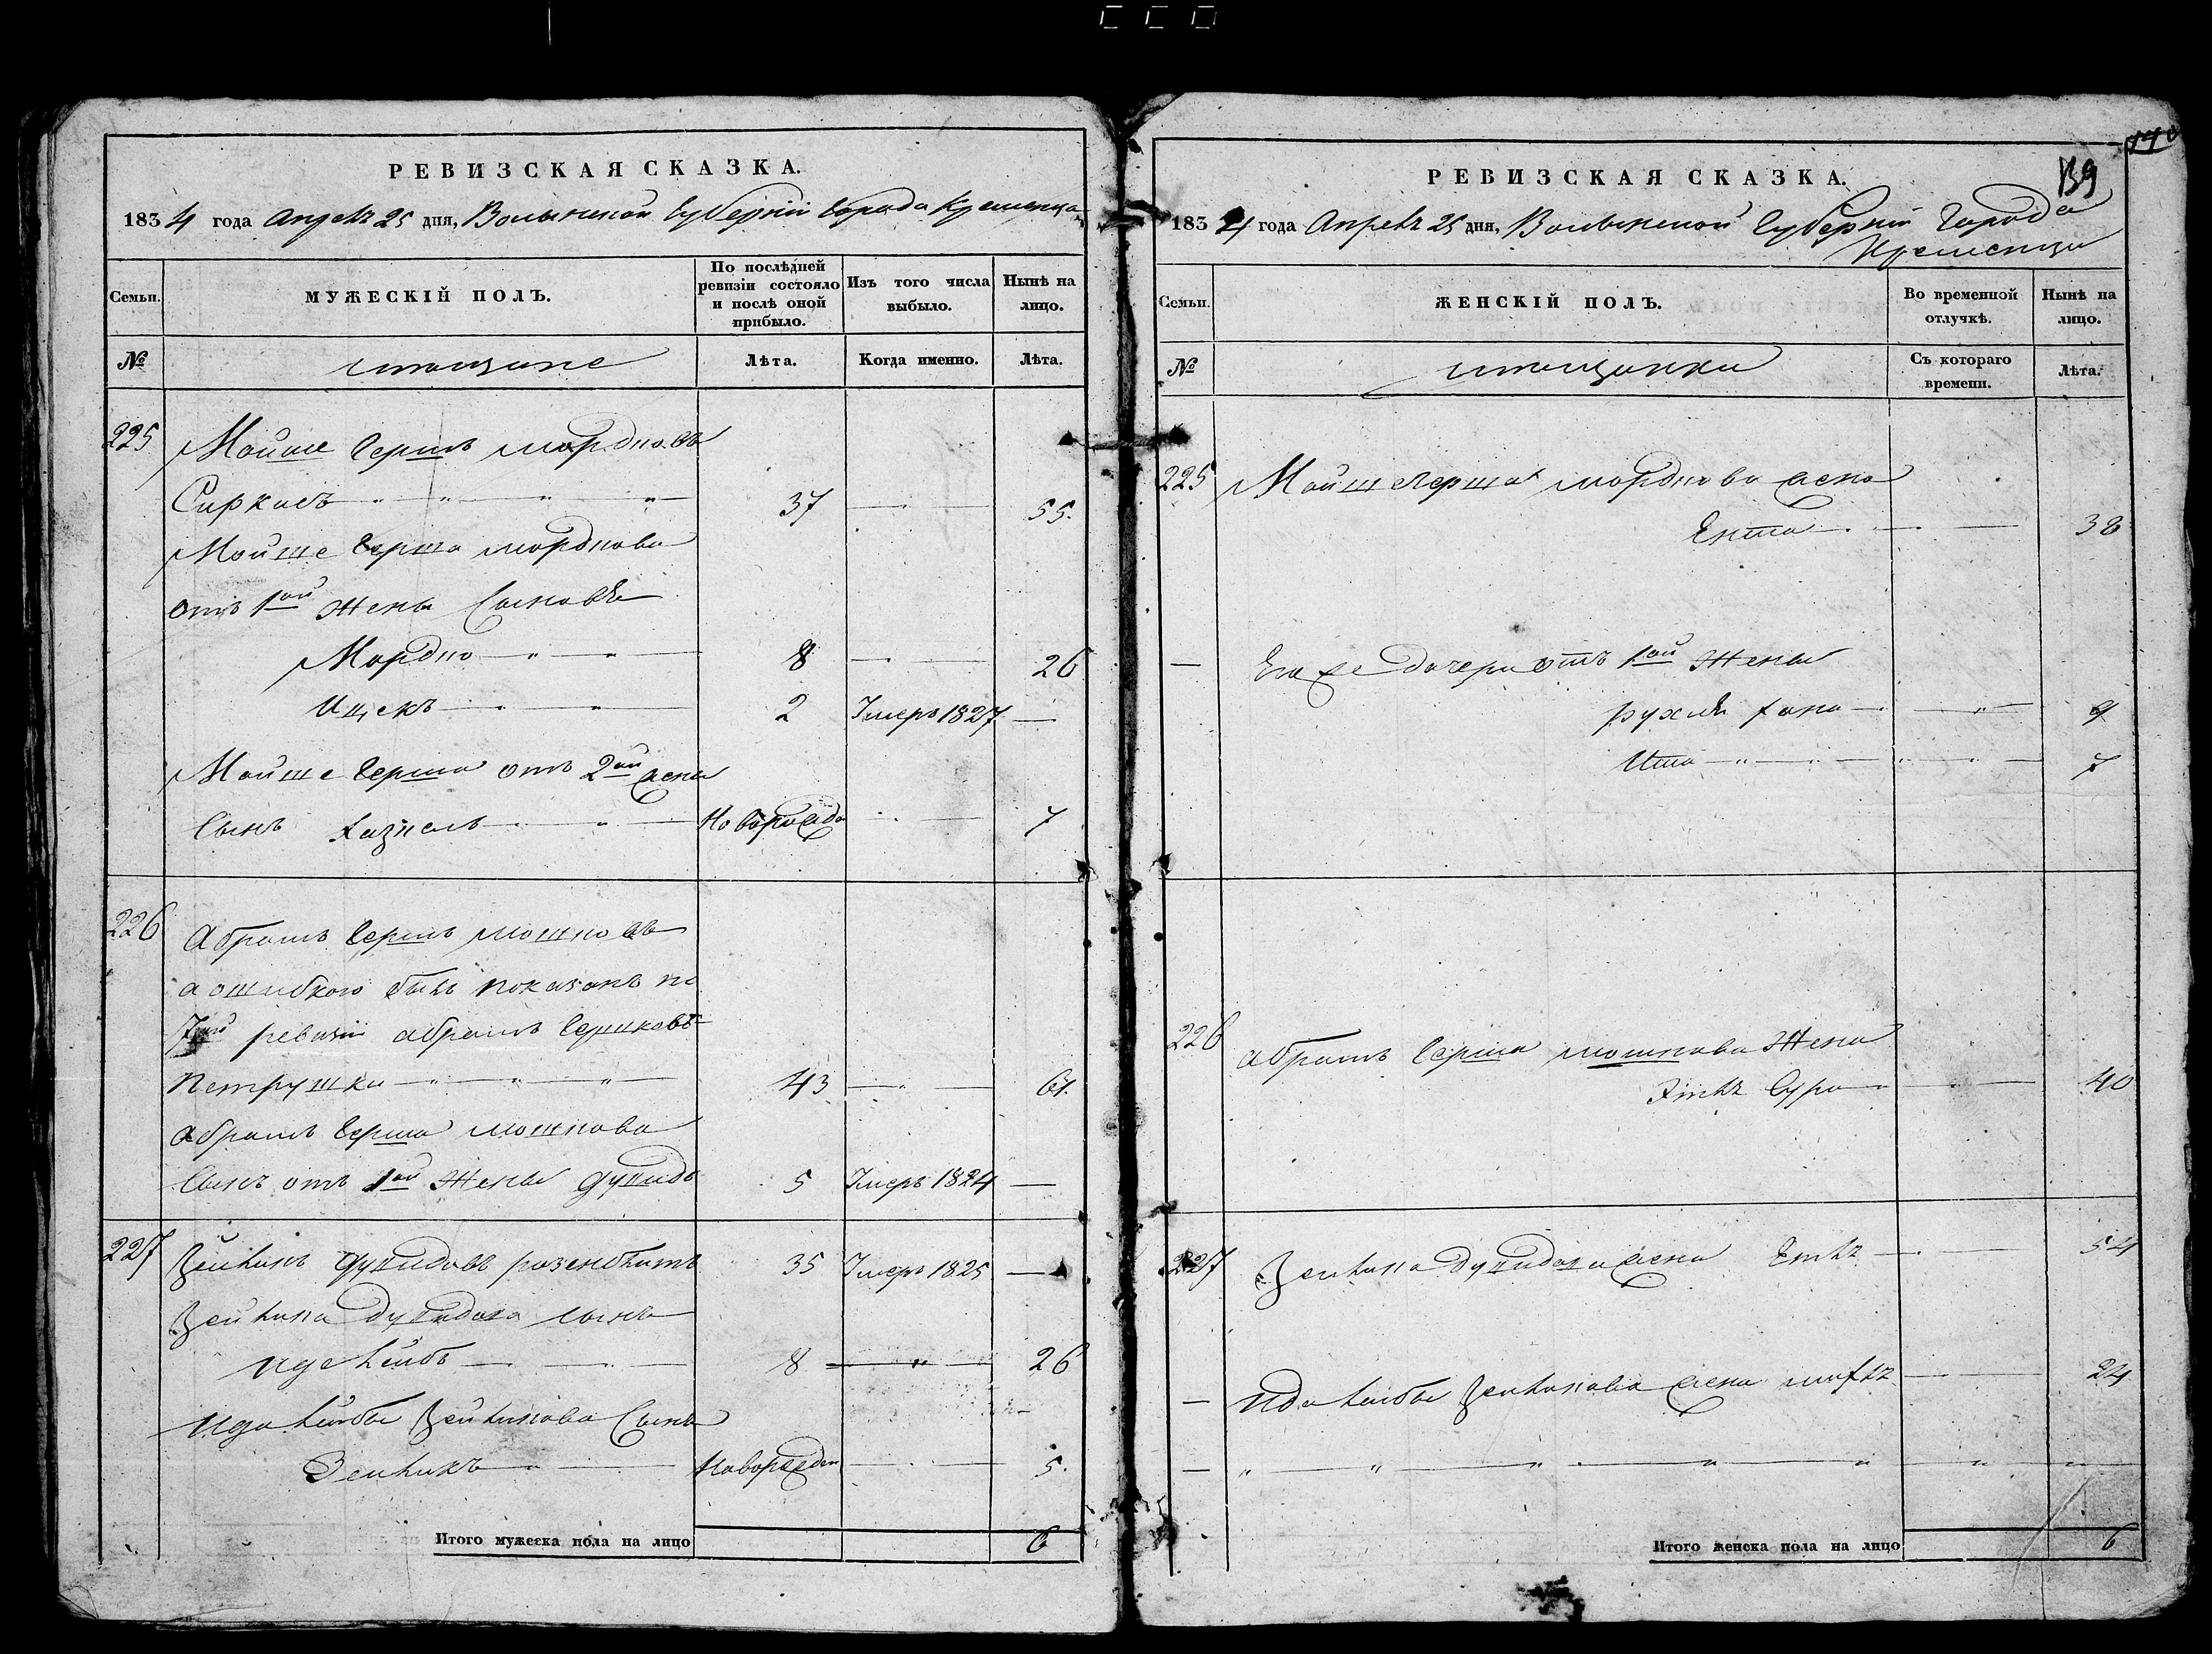 РЕВИЗСКАЯ СКАЗКА.
1834 года Апрелѣ 25 дня, Волынской Губерніи Города Кременца
Семьи.
МУЖЕСКІЙ ПОЛЪ.
По послѣдней ревизіи состояло и послѣ оной прибыло.
Изъ того числа выбыло.
Нынѣ на лицо.
№
мѣщане
Лѣта.
Когда именно.
Лѣта.
225 Мойше Гершъ Мордковъ
Сиркасъ 37 55.
Мойше Герша Мордкова
отъ 1ой жены Сыновья
Мордко 8 26
Ицекъ 2 Умеръ 1827
Мойше Герша отъ 2ой жены
Сынъ 7
226 Абрамъ Гершъ Мошковъ
а ошибкою былъ показанъ по
7ой ревизіи Абрамъ
Петрушка 43 61.
Абрамъ Герша Мошкова
Сынъ отъ 1ой жены Дувидъ 5 Умеръ 1824
227 Зейликъ Дувидовъ 35 Умеръ 1825
Зейлика Дувидова сынъ
Иделейбъ 8 26
Иделейбы Зейликова Сынъ
Зейликъ Новорожден 5.
Итого мужеска пола на лицо 6
140
139
РЕВИЗСКАЯ СКАЗКА.
1834 года Апрелѣ 25 дня, Волынской Губерніи Города
Кременца
Семьи.
ЖЕНСКІЙ ПОЛЪ.
Во временной отлучкѣ.
Нынѣ на лицо.
№
мѣщанки
Съ котораго времени.
Лѣта.
225 Мойше Герша Мордкова жена
Ента 38
Егоже дочери отъ 1ой жены
Рухля Хана 9
Ита 7
226 Абрамъ Герша Мошкова Жена
Сура 40
227 Зейлика Дувидова жена Етлѣ 54
Иделейбы Зейликова жена 24
Итого женска пола на лицо 6